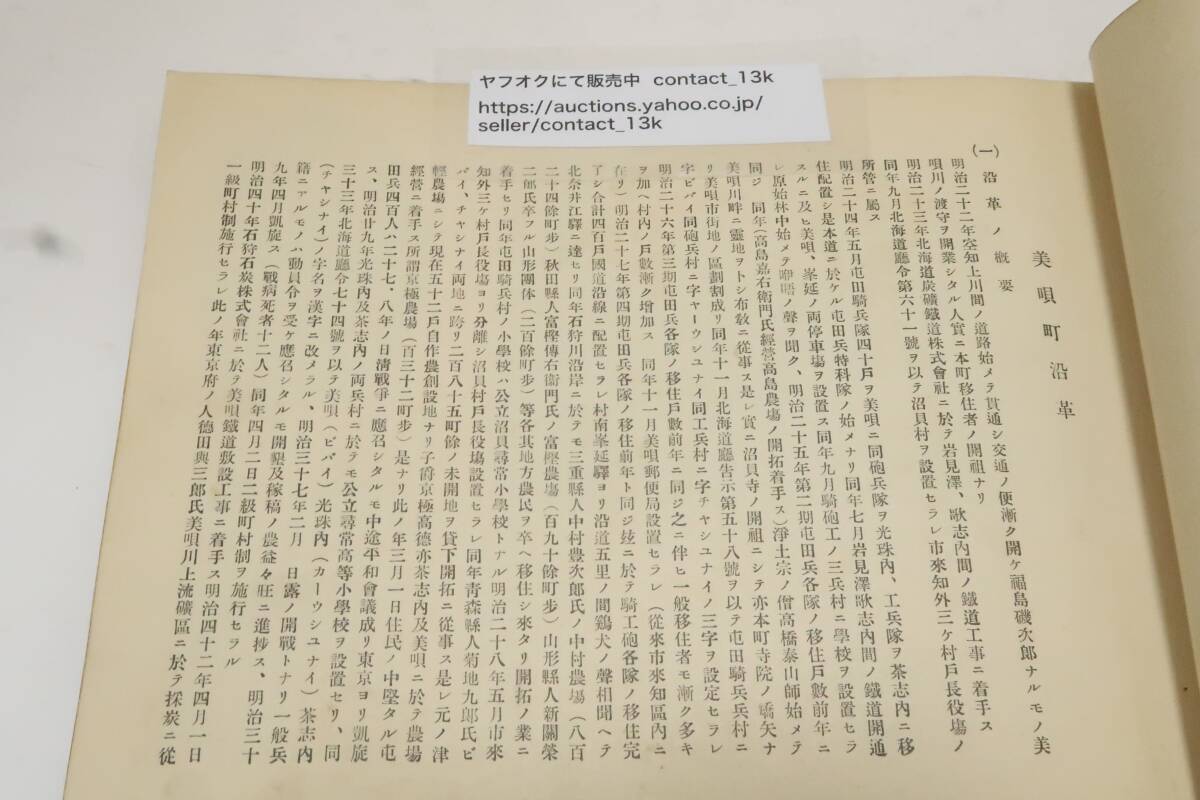 ヤフオクにて販売中 contact_13k
https://auctions.yahoo.co.jp/
seller/contact_13k
美唄町沿革
(一) 沿革ノ概要
明治二十二年空知上川間ノ道路始メテ貫通シ交通ノ便漸ク開ケ福島磯次郎ナルモノ美
唄川ノ渡守ヲ開業シタル人實ニ本町移住者ノ開祖ナリ
明治二十三年北海道炭礦鐵道株式會社ニ於テ岩見澤、歌志內間ノ鐵道工事ニ着手ス
同年九月北海道廳令第六十一號ヲ以テ沼貝村ヲ設置セラレ市來知外三ケ村戶長役塲ノ
所管ニ屬ス
明治二十四年五月屯田騎兵隊四十戶ヲ美唄ニ同砲兵隊ヲ光珠內、工兵隊ヲ茶志內ニ移
住配置シ是本道ニ於ケル屯田兵特科隊ノ始メナリ同年七月岩見澤歌志內間ノ鐵道開通
スルニ及ヒ美唄、峯延ノ兩停車塲ヲ設置ス同年九月騎砲工ノ三兵村ニ學校ヲ設置セラ
レ原始林中始メテ咿唔ノ聲ヲ聞ク、明治二十五年第二期屯田兵各隊ノ移住戶數前年ニ
同ジ 同年(高島嘉右衛門氏經營高島農塲ノ開拓着手ス)淨土宗ノ僧高橋泰山師始メテ
美唄川畔ニ靈地ヲトシ布敎ニ從事ス是レ實ニ沼貝寺ノ開祖ニシテ亦本町寺院ノ嚆矢ナ
リ美唄市街地ノ區劃割成リ同年十一月北海道廳吿示第五十八號ヲ以テ屯田騎兵兵村ニ
字ビバイ同砲兵村ニ字カーウシユナイ同工兵村ニ字チヤシユナイノ三字ヲ設定セラレ
明治二十六年第三期屯田兵各隊ノ移住戶數前年ニ同ジ之ニ伴ヒ一般移住者モ漸ク多キ
ヲ加ヘ村內ノ戶數漸ク增加ス 同年十一月美唄郵便局設置セラレ(從來市來知區內ニ
在リ)明治二十七年第四期屯田兵各隊ノ移住前年ト同ジ玆ニ於テ騎工砲各隊ノ移住完
了シ合計四百戶國道沿線ニ配置セラレ村南峯延驛ヨリ沿道五里ノ間鷄犬ノ聲相聞ヘテ
北奈井江驛ニ達セリ同年石狩川沿岸ニ於テモ三重縣人中村豊次郎氏ノ中村農塲(八百
二十四餘町步)秋田縣人富樫傳右衞門氏ノ富樫農塲(百九十餘町步)山形縣人新關榮
二郎氏卒フル山形團体(二百餘町步)等各其地方農民ヲ卒ヘ移住シ來タリ開拓ノ業ニ
着手セリ同年屯田騎兵村ノ小學校ハ公立沼貝尋常小學校トナル明治二十八年五月市來
知外三ケ村戶長役塲ヨリ分離シ沼貝村戶長役塲設置セラレ同年靑森縣人菊地九郎氏ビ
バイ、チヤシナイ兩地ニ跨リ二百八十五町餘ノ未開地ヲ貸下開拓ニ從事ス是レ元ノ津
輕農塲ニシテ現在五十二戶自作農創設地ナリ子爵京極高德亦茶志內及美唄ニ於テ農塲
經營ニ着手ス所謂京極農塲(百三十二町步)是ナリ此ノ年三月一日住民ノ中堅タル屯
田兵四百人ハ二十七、八年ノ日淸戰爭ニ應召シタルモ中途平和會議成リ東京ヨリ凱旋
ス、明治廿九年光珠內及茶志內ノ兩兵村ニ於テモ公立尋常高等小學校ヲ設置セリ、同
三十三年北海道廳令七十四號ヲ以テ美唄(ビバイ)光珠內(カーウシユナイ)茶志內
(チヤシナイ)ノ字名ヲ漢字ニ改メラル、明治三十七年二月 日露ノ開戰トナリ一般兵
籍ニアルモノハ動員令ヲ受ケ應召シタルモ開墾及稼稿ノ農益々旺ニ進捗ス、明治三十
九年四月凱旋ス(戰病死者十二人)同年四月二日二級町村制ヲ施行セラル
明治四十年石狩石炭株式會社ニ於テ美唄鐵道敷設工事ニ着手ス明治四十二年四月一日
一級町村制施行セラレ此ノ年東京府ノ人德田與三郎氏美唄川上流礦區ニ於テ採炭ニ從